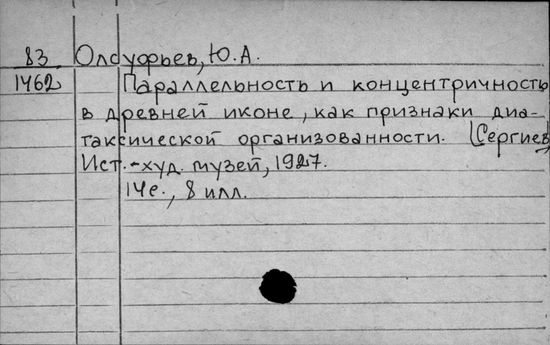 83 Олсуфьев, Ю.А.
1462 Параллельность и концентричность
в древней иконе, как признаки диа-
таксической организованности. [Сергиев]
Ист.-худ. музей, 1927.
14с., 8 илл.